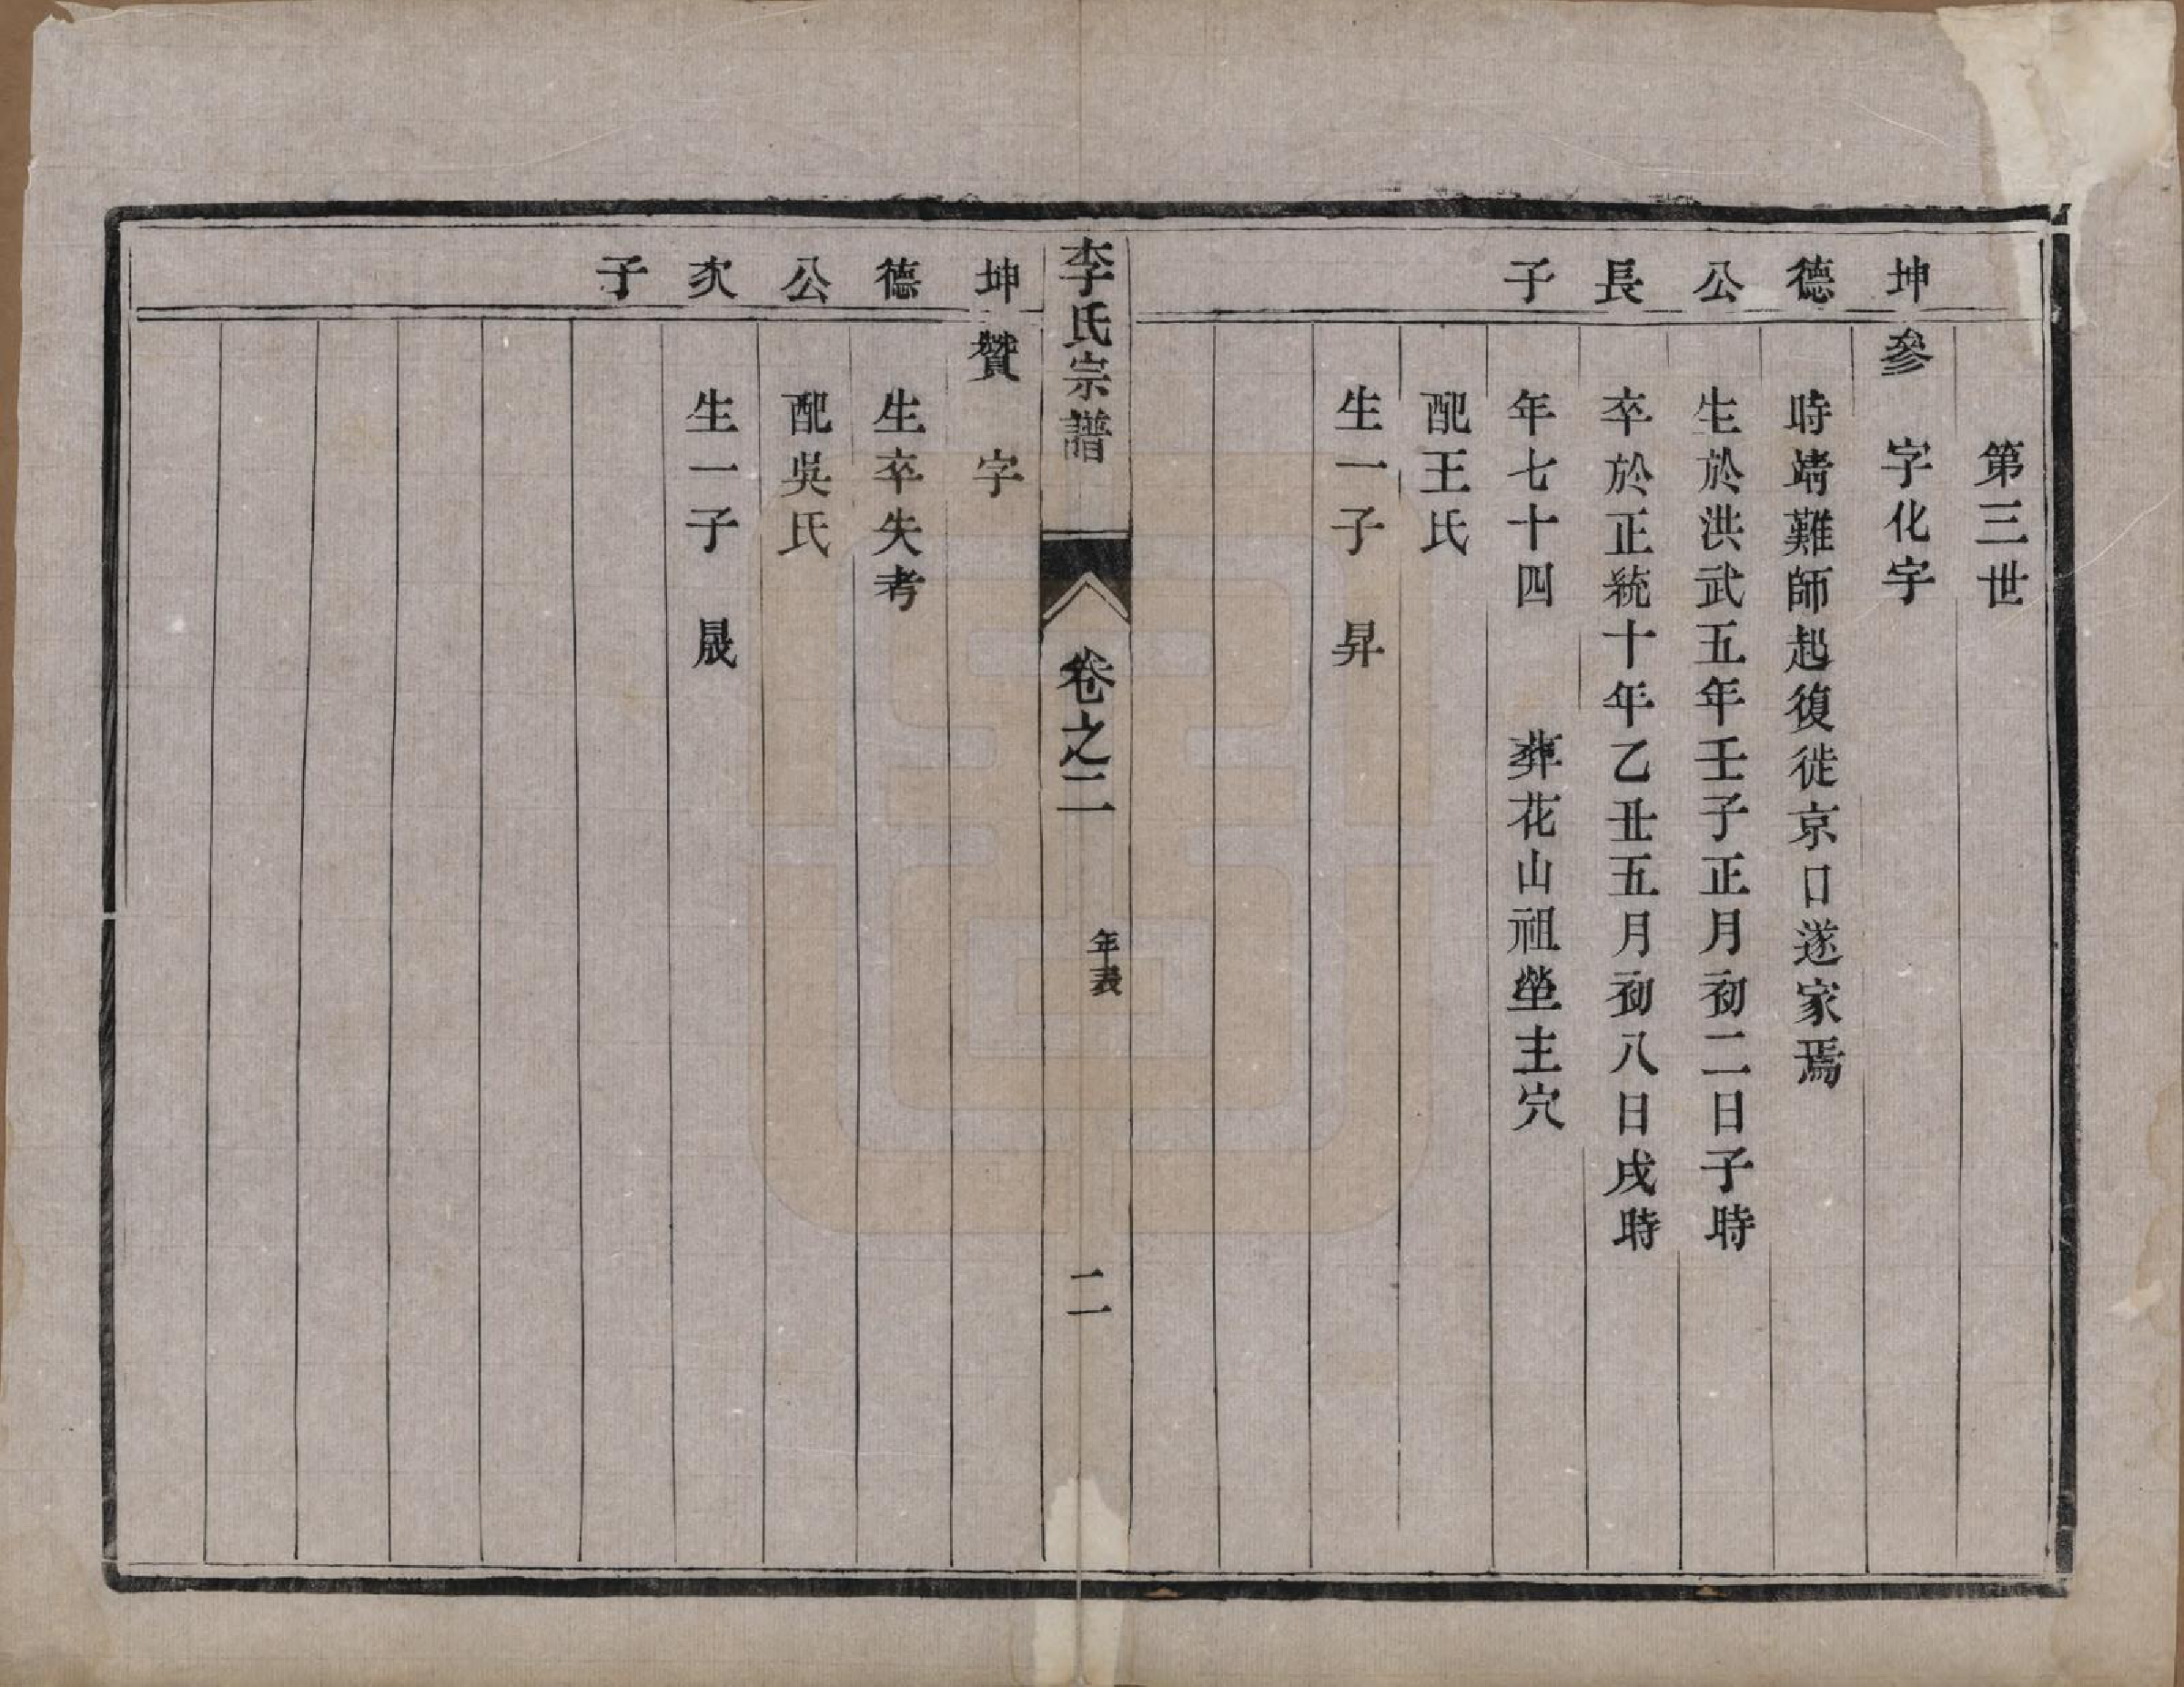 第三世
坤德公長子
參　字化宇
時靖難師起復徙京口遂家焉
生於洪武五年壬子正月初二日子時
卒於正統十年乙丑五月初八日戌時
年七十四　　葬花山祖塋主穴
配王氏
生一子　昇
李氏宗譜　卷之二　年表　二
坤德公次子
贊　字
生卒失考
配吳氏
生一子　晟